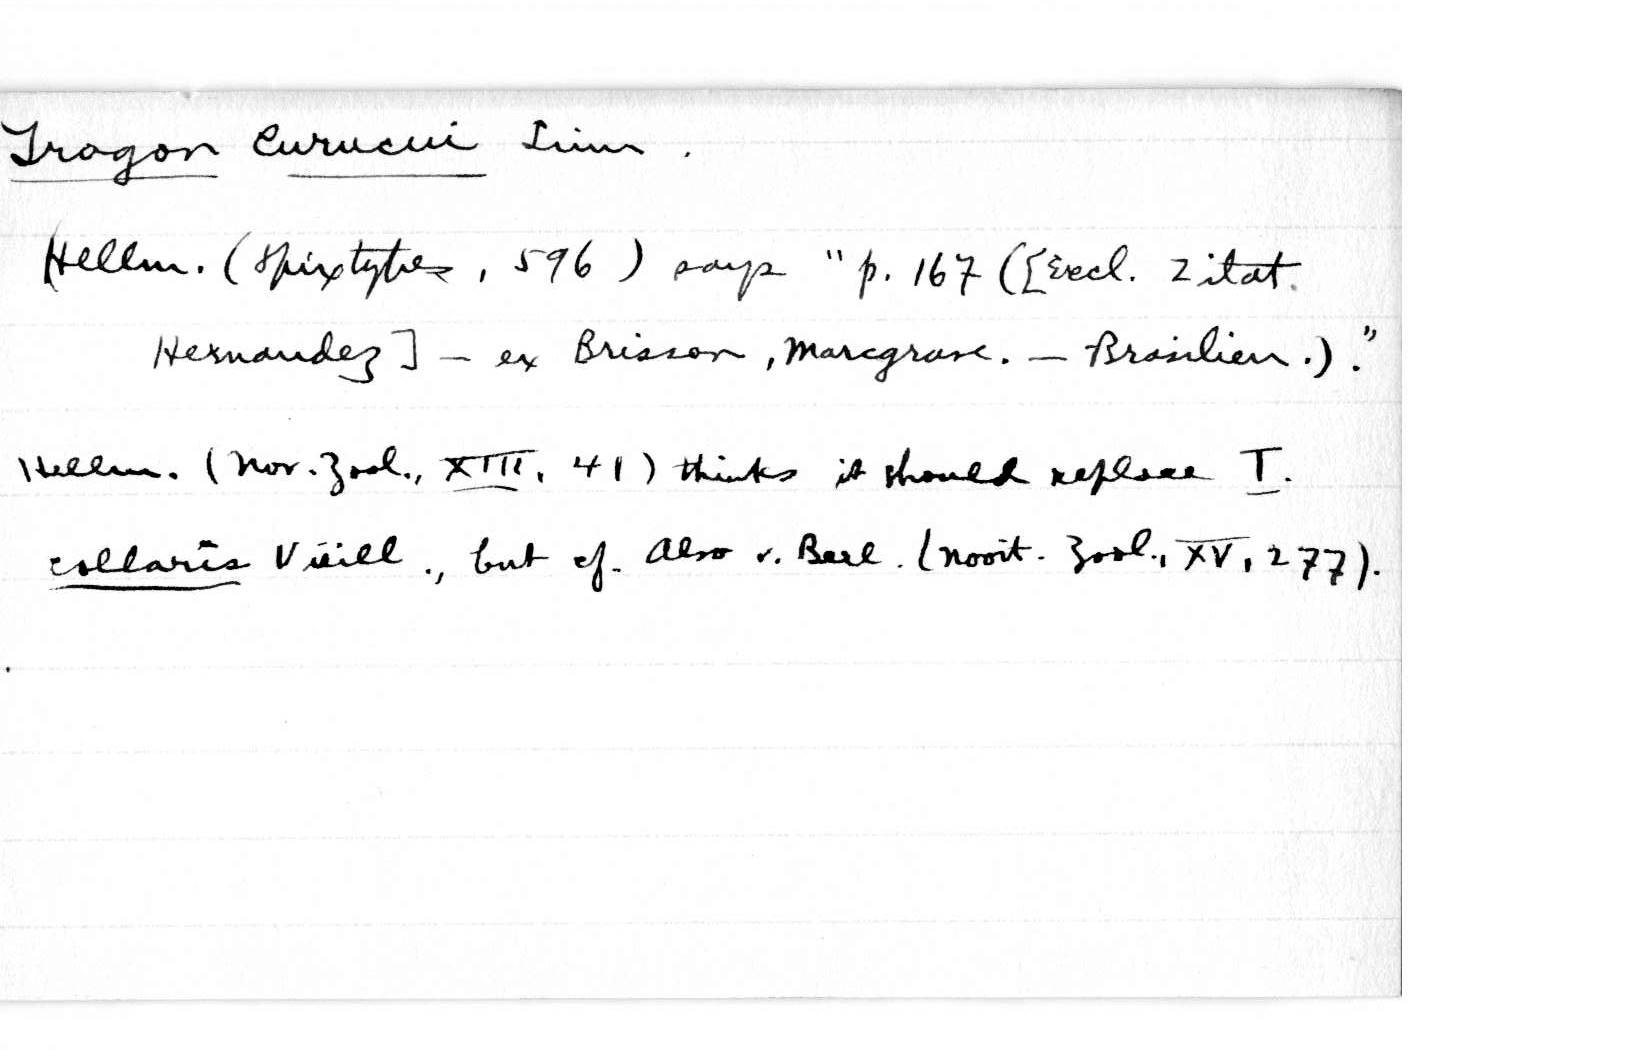 Trogon curucui Linn.
Hellm. (Spixtypes, 596) says "p. 167 ([Excl. Zitat.
Hernandez] – ex Brisson, Marcgrave. – Brasilien.)."
Hellm. (Nov. Zool., XIII, 41) thinks it should replace T.
collaris Vieill., but cf. Also v. Berl. (Novit. Zool., XV, 277).